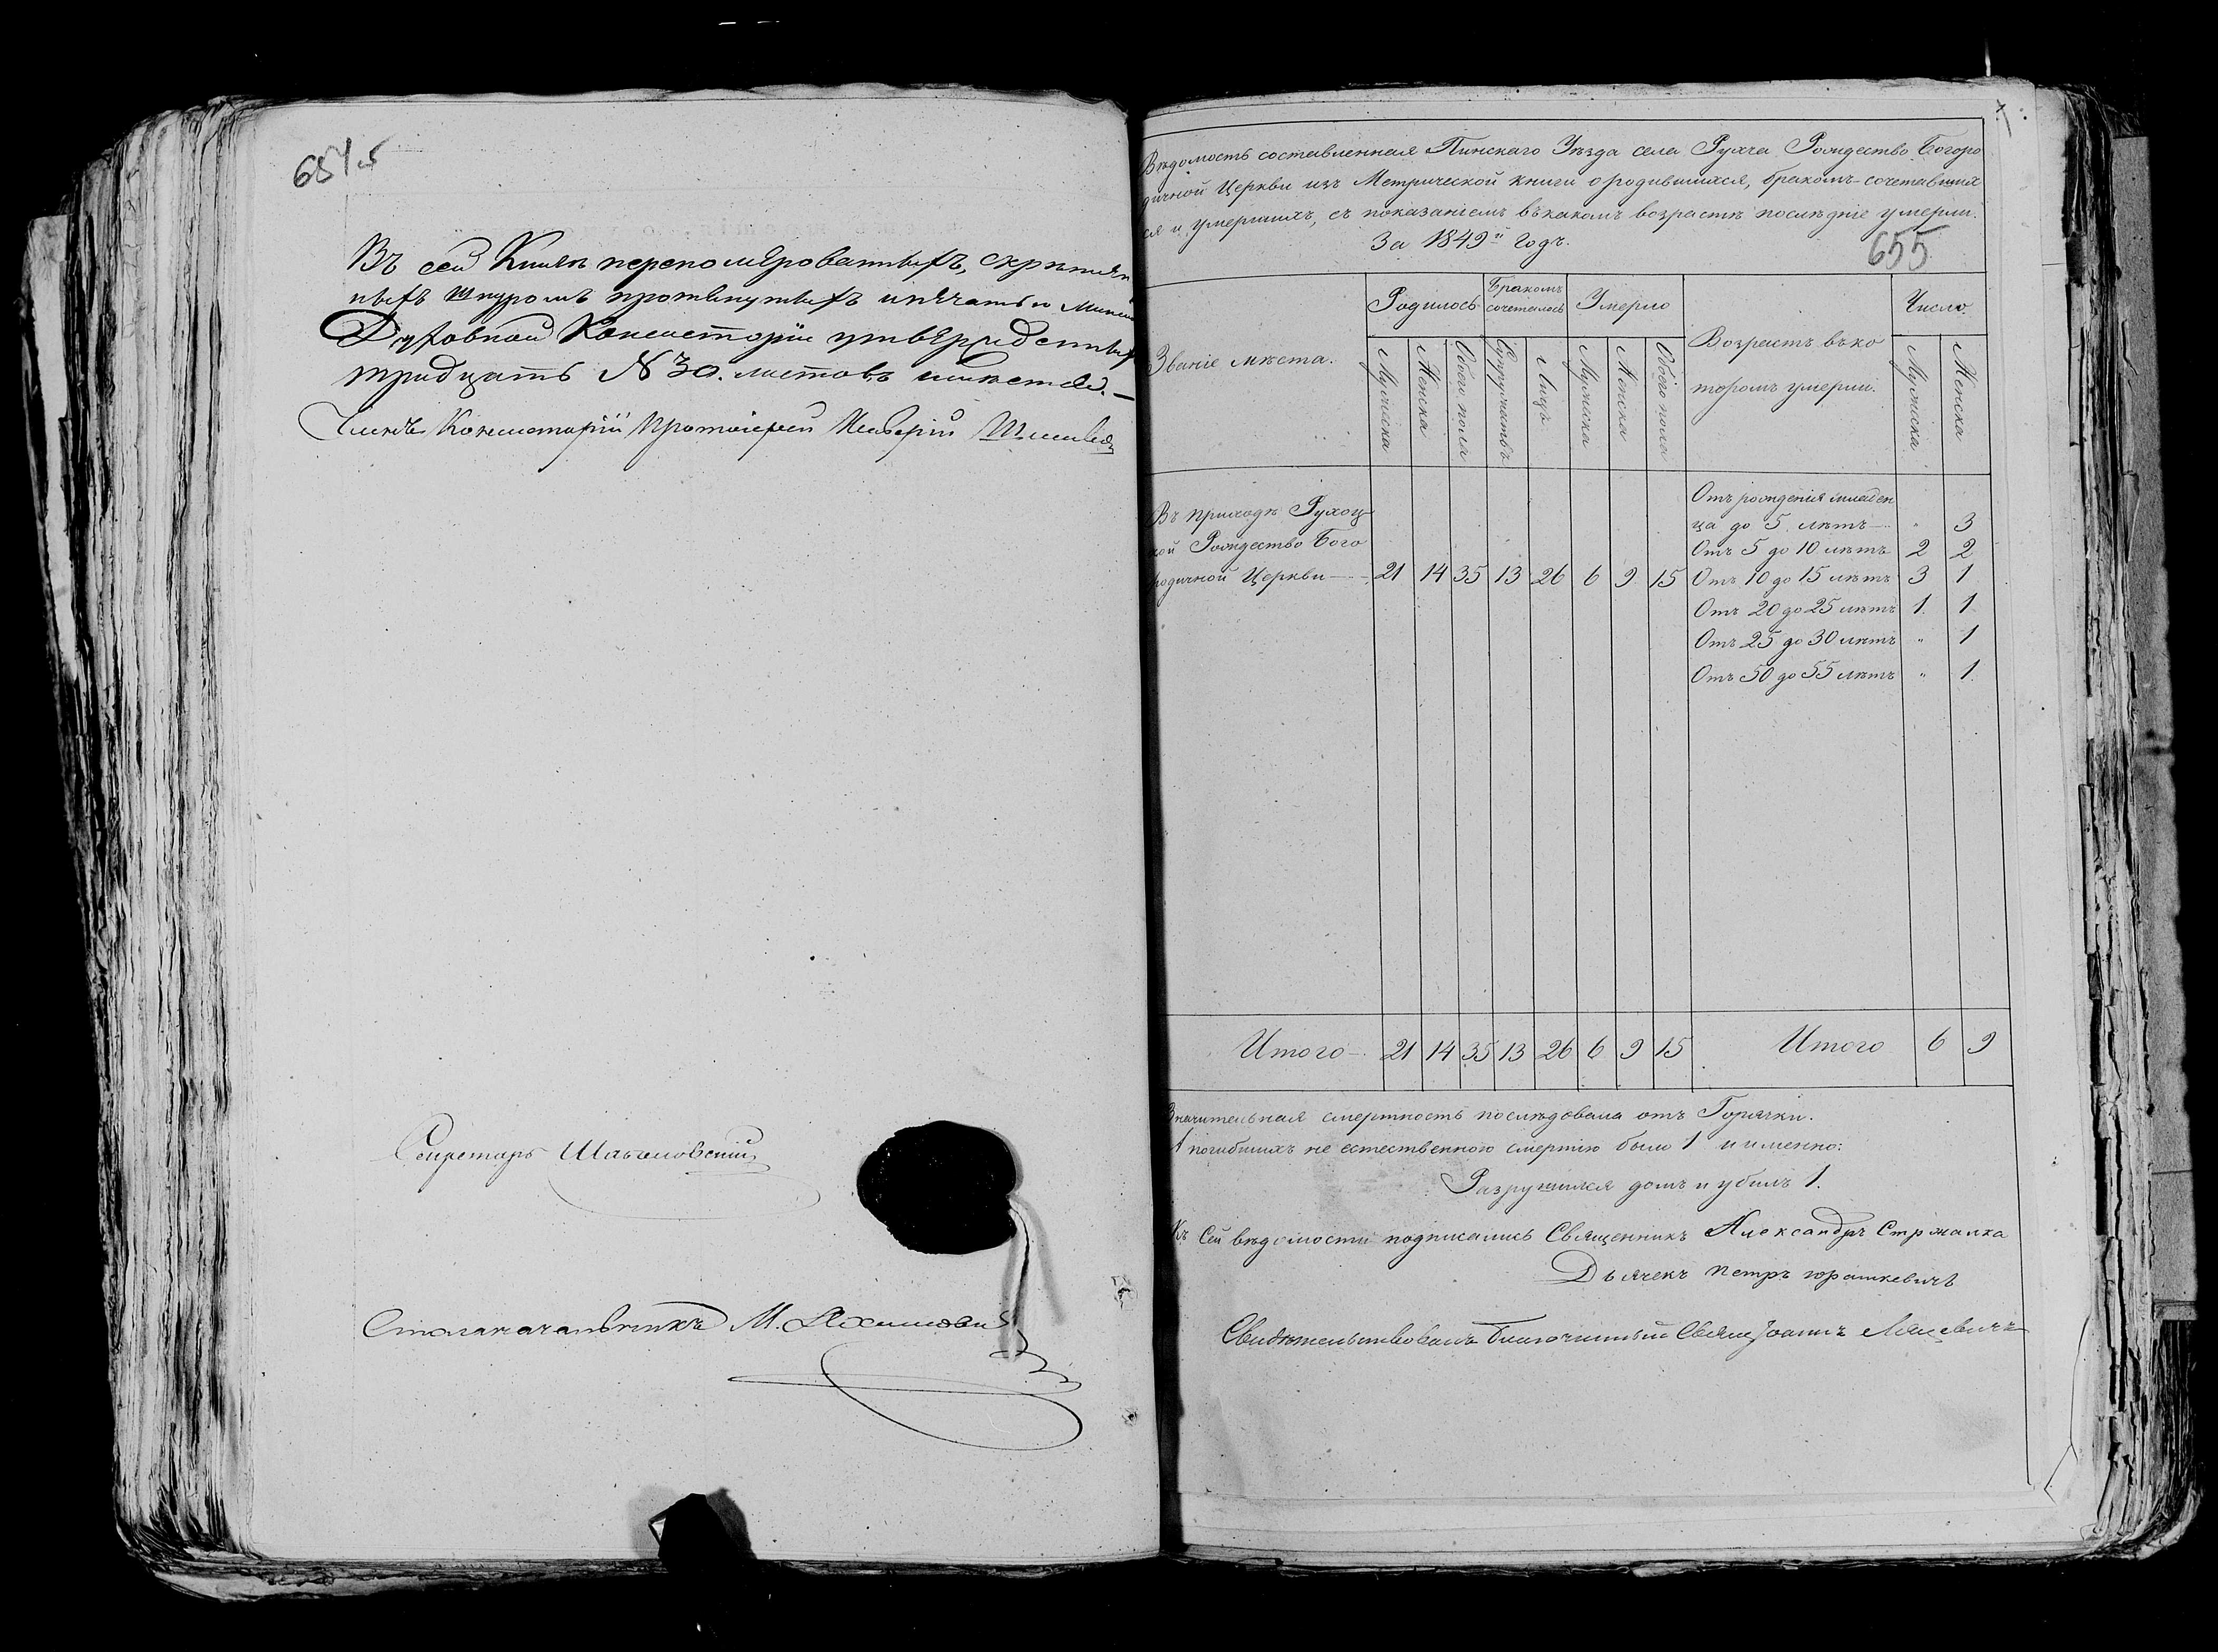 654об
Въ сей Книгѣ переномѣрованныхъ, скрѣплен
ныхъ шнуромъ протянутыхъ и печатью Минской
Духовной Консисторіи утвержденныхъ
тридцать N 30. листовъ имѣется. —
Членъ Консисторіи Протоіерей
Секретарь
Столоначальникъ М.
Вѣдомость составленная Пинскаго Уѣзда села Рухча Рождество Богоро
дичной Церкви изъ Метрической книги о родившихся, бракомъ сочетавших
ся и умершихъ, съ показаніемъ въ какомъ возрастѣ послѣдніе умерли.
За 1849й Годъ.
655
Званіе мѣста.
Родилось
Бракомъ сочеталось
Умерло
Возрастъ въ ко
торомъ умерли.
Число.
Мужеска
Женска
Обоего пола
Супружествъ
Лицъ
Мужеска
Женска
Обоего пола
Мужска
Женска
Въ приходѣ Рухоц
кой Рождество Бого
родичной Церкви — 21 14 35 13 26 6 9 15
Отъ рожденія младен
ца до 5 лѣтъ — " 3
Отъ 5 до 10 лѣтъ 2 2
Отъ 10 до 15 лѣтъ 3 1
Отъ 20 до 25 лѣтъ 1. 1
Отъ 25 до 30 лѣтъ " 1
Отъ 50 до 55 лѣтъ " 1.
Итого — 21 14 35 13 26 6 9 15 Итого 6 9
Значительная смертность послѣдовала отъ Горячки.
А погибшихъ не естественною смертію было 1 и именно:
Разрушился домъ и убилъ 1.
Къ сей вѣдомости подписались Священникъ Александръ Стржалка
Дьячекъ Петръ Юрашкевичъ
Свидѣтельствовалъ Благочинный Свящ Іоаннъ Ляцевичъ